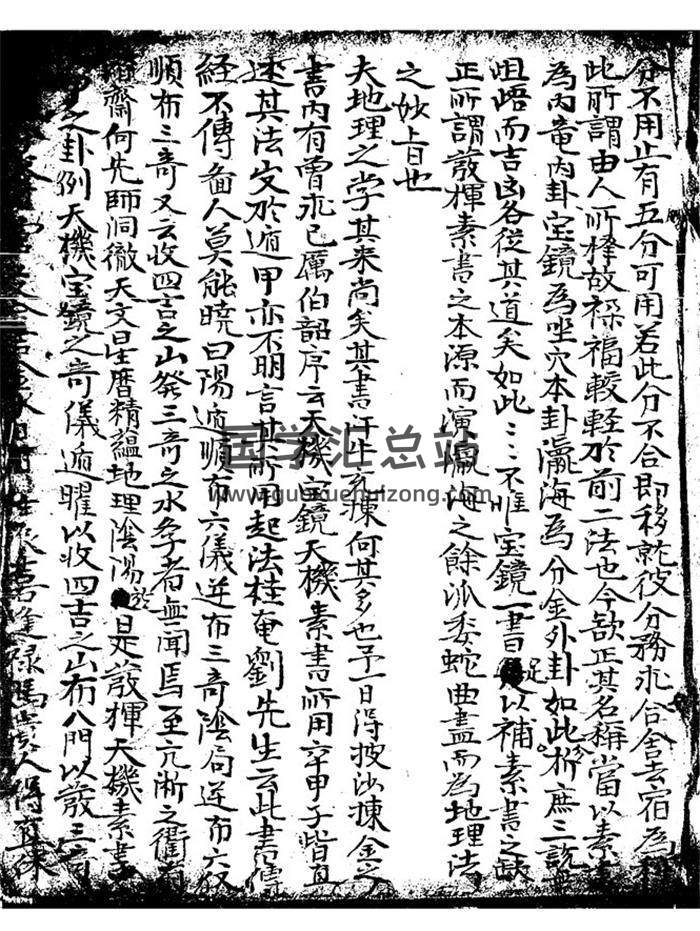 分不用止有五分可用若此分不合即移就彼分務求合舍去宿為
此所謂由人所擇故禄福較輕於前二法也今欲正其名稱當以素書
為內竜內卦宝鏡為坐穴本卦瀛海為分金外卦如此分析庶三說無
咀唔而吉凶各從其道矣如此〻不惟宝鏡一書足以補素書之缺
正所謂發揮素書之本源而演瀛海之餘派委蛇曲盡而為地理法
之妙上旨也
夫地理之学其来尚矣其書汗牛充棟何其多也予一日得披沙揀金之
書內有曾求已厲伯韶序云天機宝鏡天機素書所用六甲子皆具
述其法文於遁甲亦不明言其所用起法桂菴劉先生云此書傳
經不傳备人莫能曉曰陽遁順布六儀逆布三奇陰局逆布六仪
順布三奇又云收四吉之山發三奇之水孝者無聞焉至亢淅之衢
齋何先師洞徹天文星曆精蘊地理陰陽於是發揮天機素書
之卦例天機宝鏡之奇儀遁曜以收四吉之山布八門以發三奇
國学汇总站
www.guoxuehuizong.com